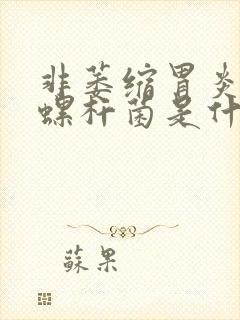 非萎缩胃炎
螺杆菌是什
蘇果